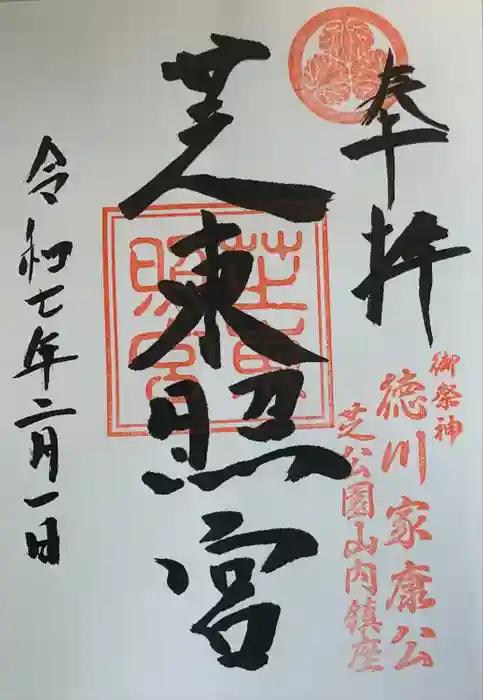 奉拝
御祭神
徳川家康公
芝公園山内鎮座
芝東照宮
芝東
照宮
令和七年二月一日